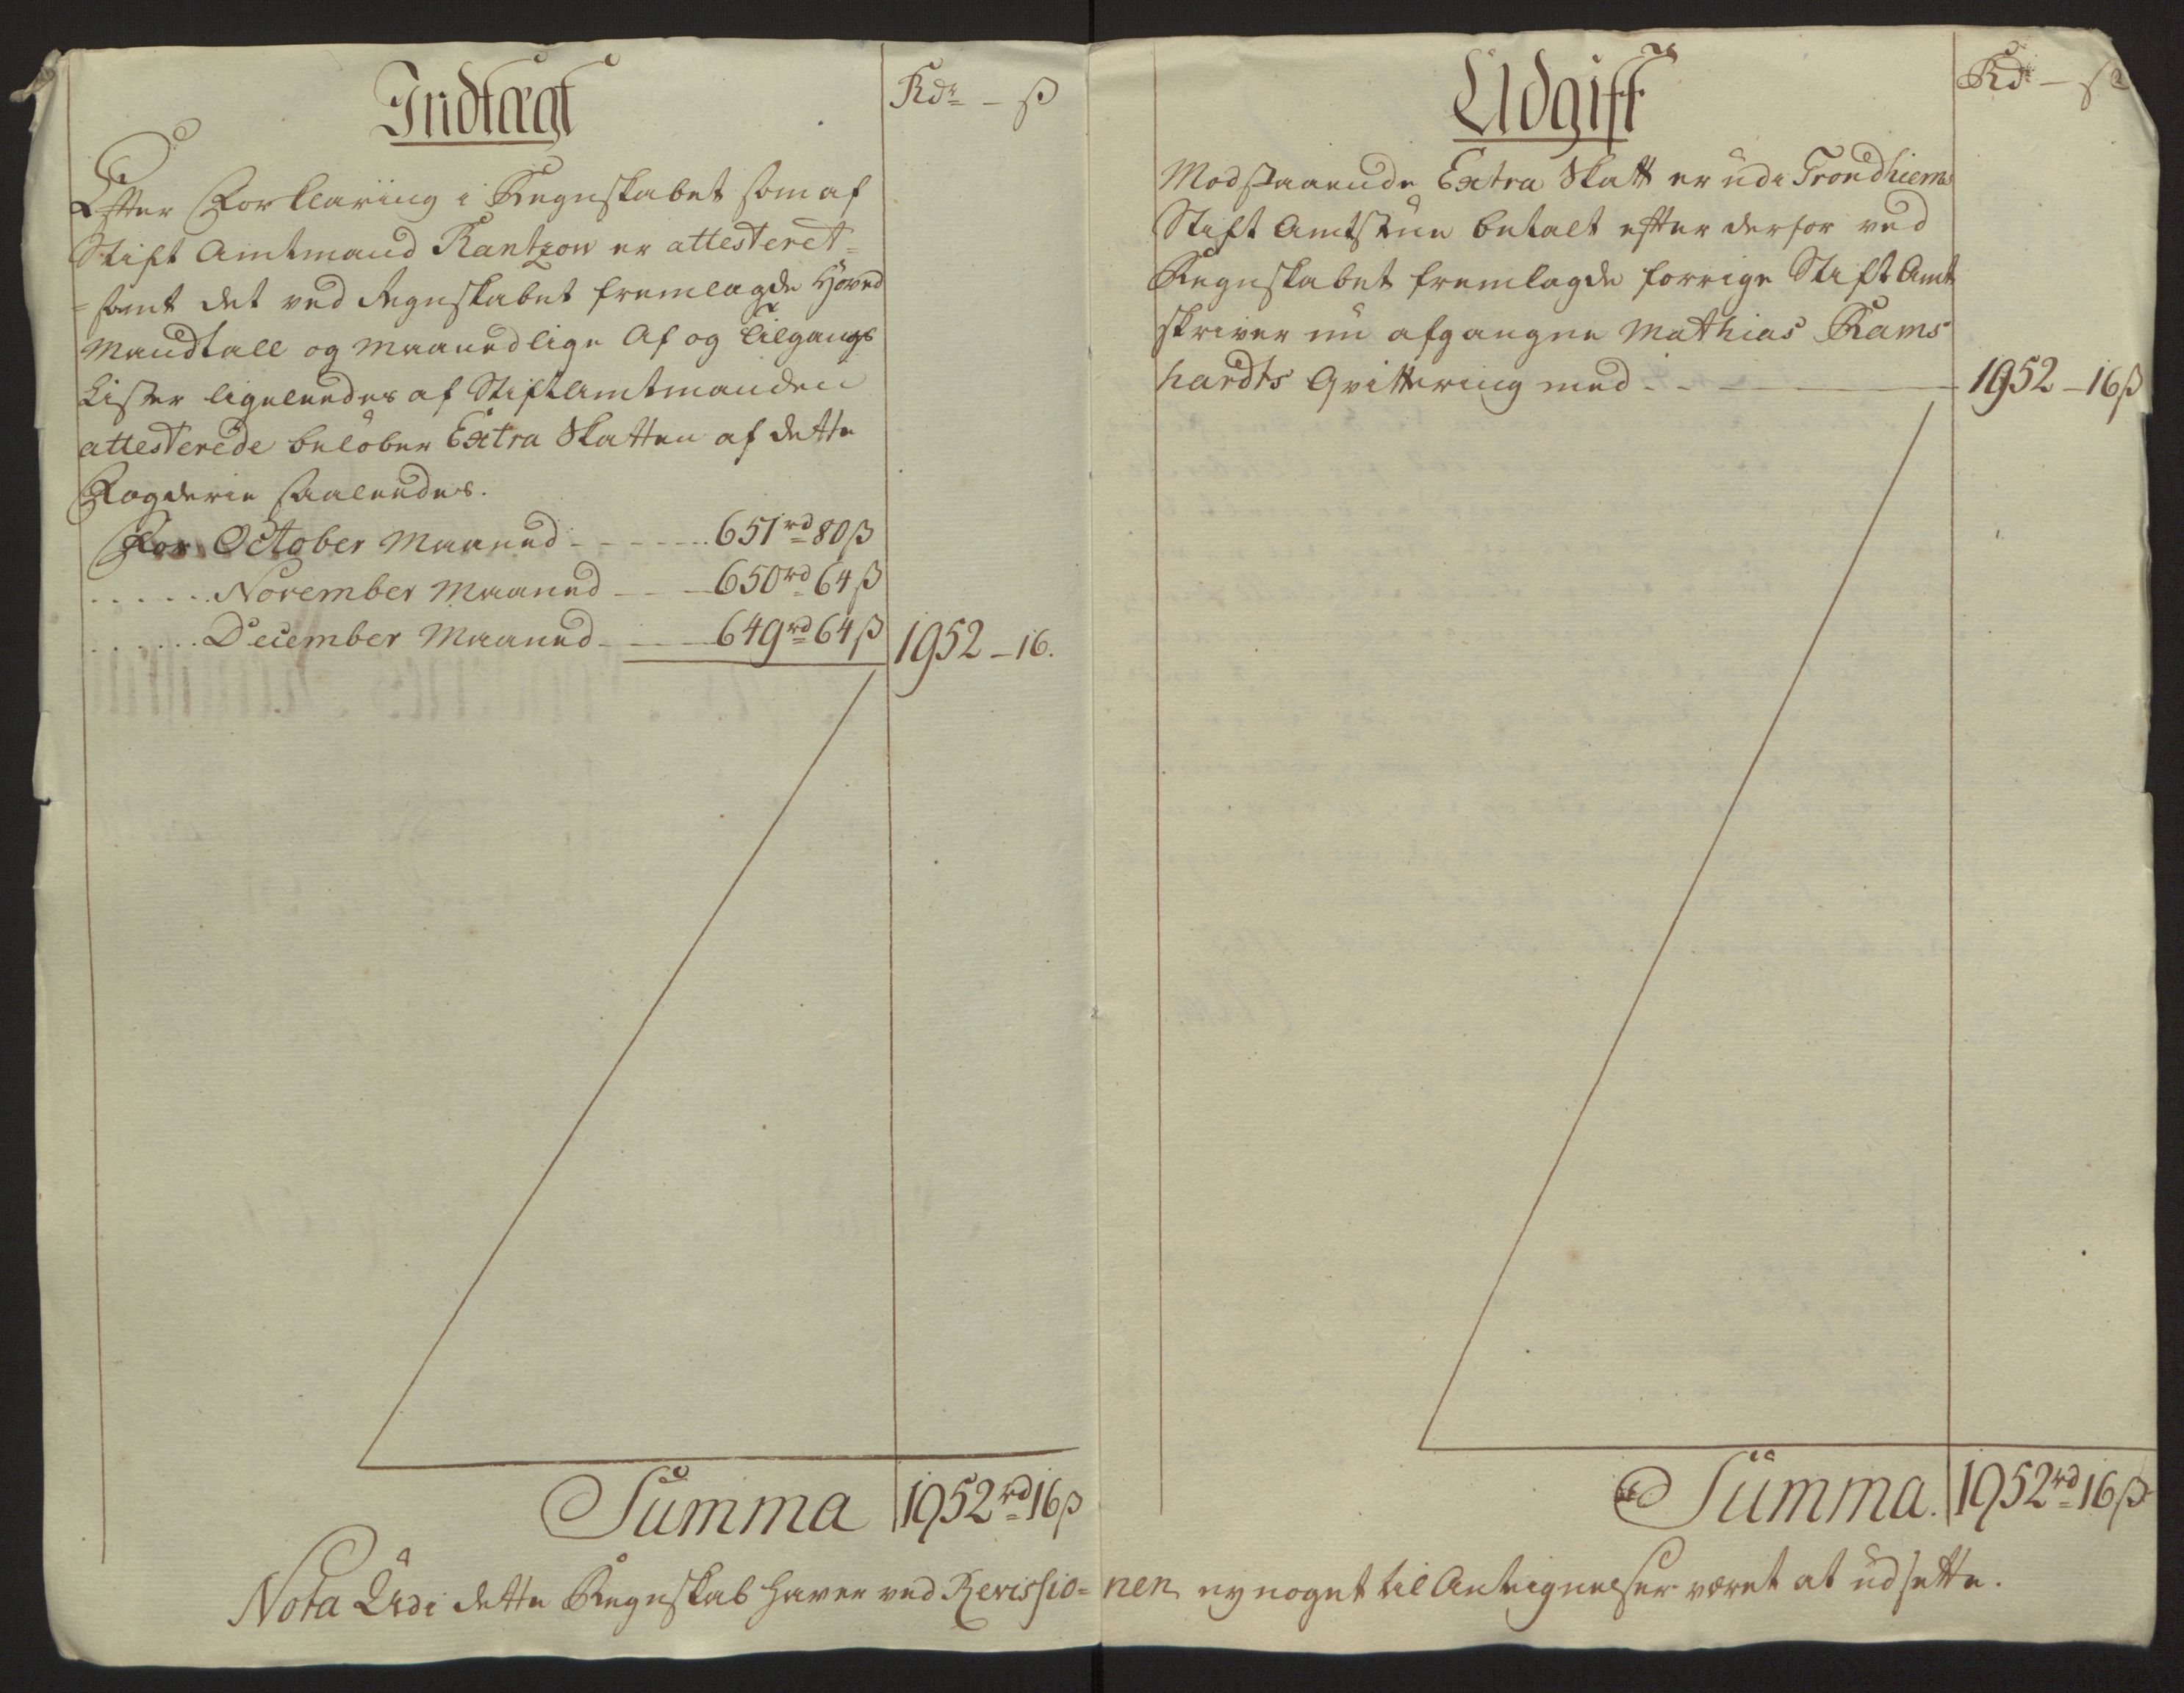 Indtægt
Rdr - ß
Efter Forklaring i Regnskabet som af
Stift Amtmand Rantzow er attesteret
samt det ved Regnskabet fremlagde Hoved
Mandtall og Maanedlige Af og Tilgangs
Lister ligeleedes af StiftAmtmanden
attesterede beløber Extra Skatten af dette
Fogderie saaleedes.
For October Maaned - - - 651rd 80ß
. . . . . November Maaned - - - 650rd 64ß
. . . . . December Maaned - - - 649rd 64ß 1952 - 16.
Summa 1952rd 16ß
Udgift
Rdr - ß
Modstaaende Extra Skatt er udi Trondhiems
Stift Amtstue betalt efter derfor ved
Regnskabet fremlagde forrige Stift Amt
skriver nu afgangne Mathias Rams
hardts Qvittering med - - - 1952 - 16ß
Summa. 1952rd 16ß
Nota Udi dette Regnskab haver ved Revissio= nen ey noget til Antegnelser været at udsette.